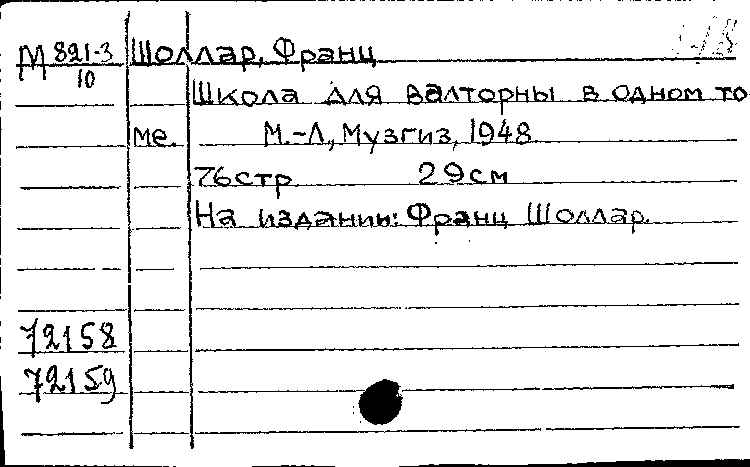 М 821-3 Шоллар, Франц
10
Школа для валторны в одном то
ме. М.-Л., Музгиз, 1948
76стр. 29см
На издании: Франц Шоллар.
72158
72159